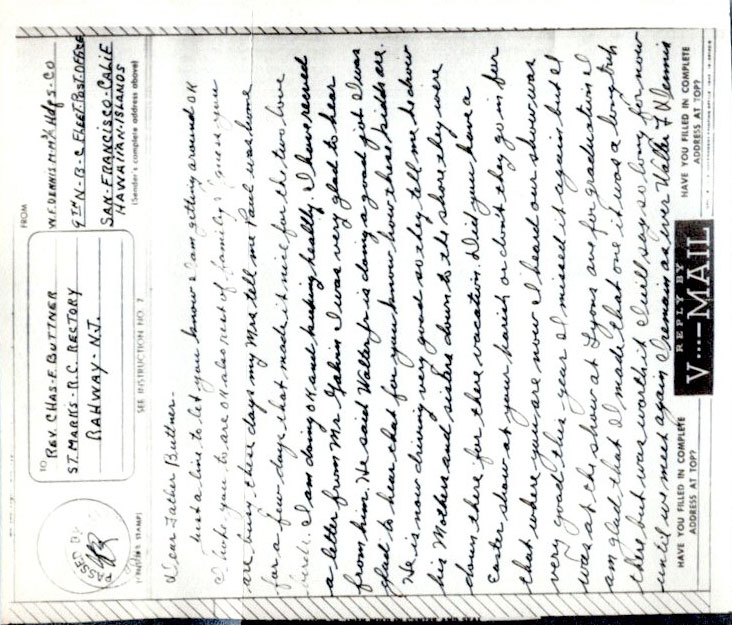 TO
REV. CHAS. F. BUTTNER
ST. MARKS - R.C. RECTORY
RAHWAY - N.J.
FROM
W.F. DENNIS M.M. 1/c Hdqs-Co
9TH N-B-C FLEET POST OFFICE
SAN-FRANCISCO-CALIF
HAWAIIAN-ISLANDS
(Sender's complete address above)
PASSED BY
(CENSOR'S STAMP)
SEE INSTRUCTION NO. 2
Dear Father Buttner.
Just a line to let you know I am getting around OK
I hope you to are OK also rest of family I guess you
are busy these days my Mrs tell me Paul was home
for a few days that made it nice for the two love
birds. I am doing OK and keeping healthy. I have received
a letter from Mr Galvin I was very glad to hear
from him. He said Walter Jr is doing a good job I was
glad to hear that for you know how those kidds are.
He is now driving very good so they tell me he drove
his Mothers and sisters down to the shore they were
down there for there vacation. Did you have a
Easter show at your parish or don't they go in for
that where you are now I heard our show was
very good this year I missed it again but I
was at the show at Lyons ave for graduation I
am glad that I made that one it was a long trip
there but was worth it I will say so long for now
until we meet again I remain as ever Walter F Dennis
HAVE YOU FILLED IN COMPLETE
ADDRESS AT TOP?
REPLY BY
V···—MAIL
HAVE YOU FILLED IN COMPLETE
ADDRESS AT TOP?